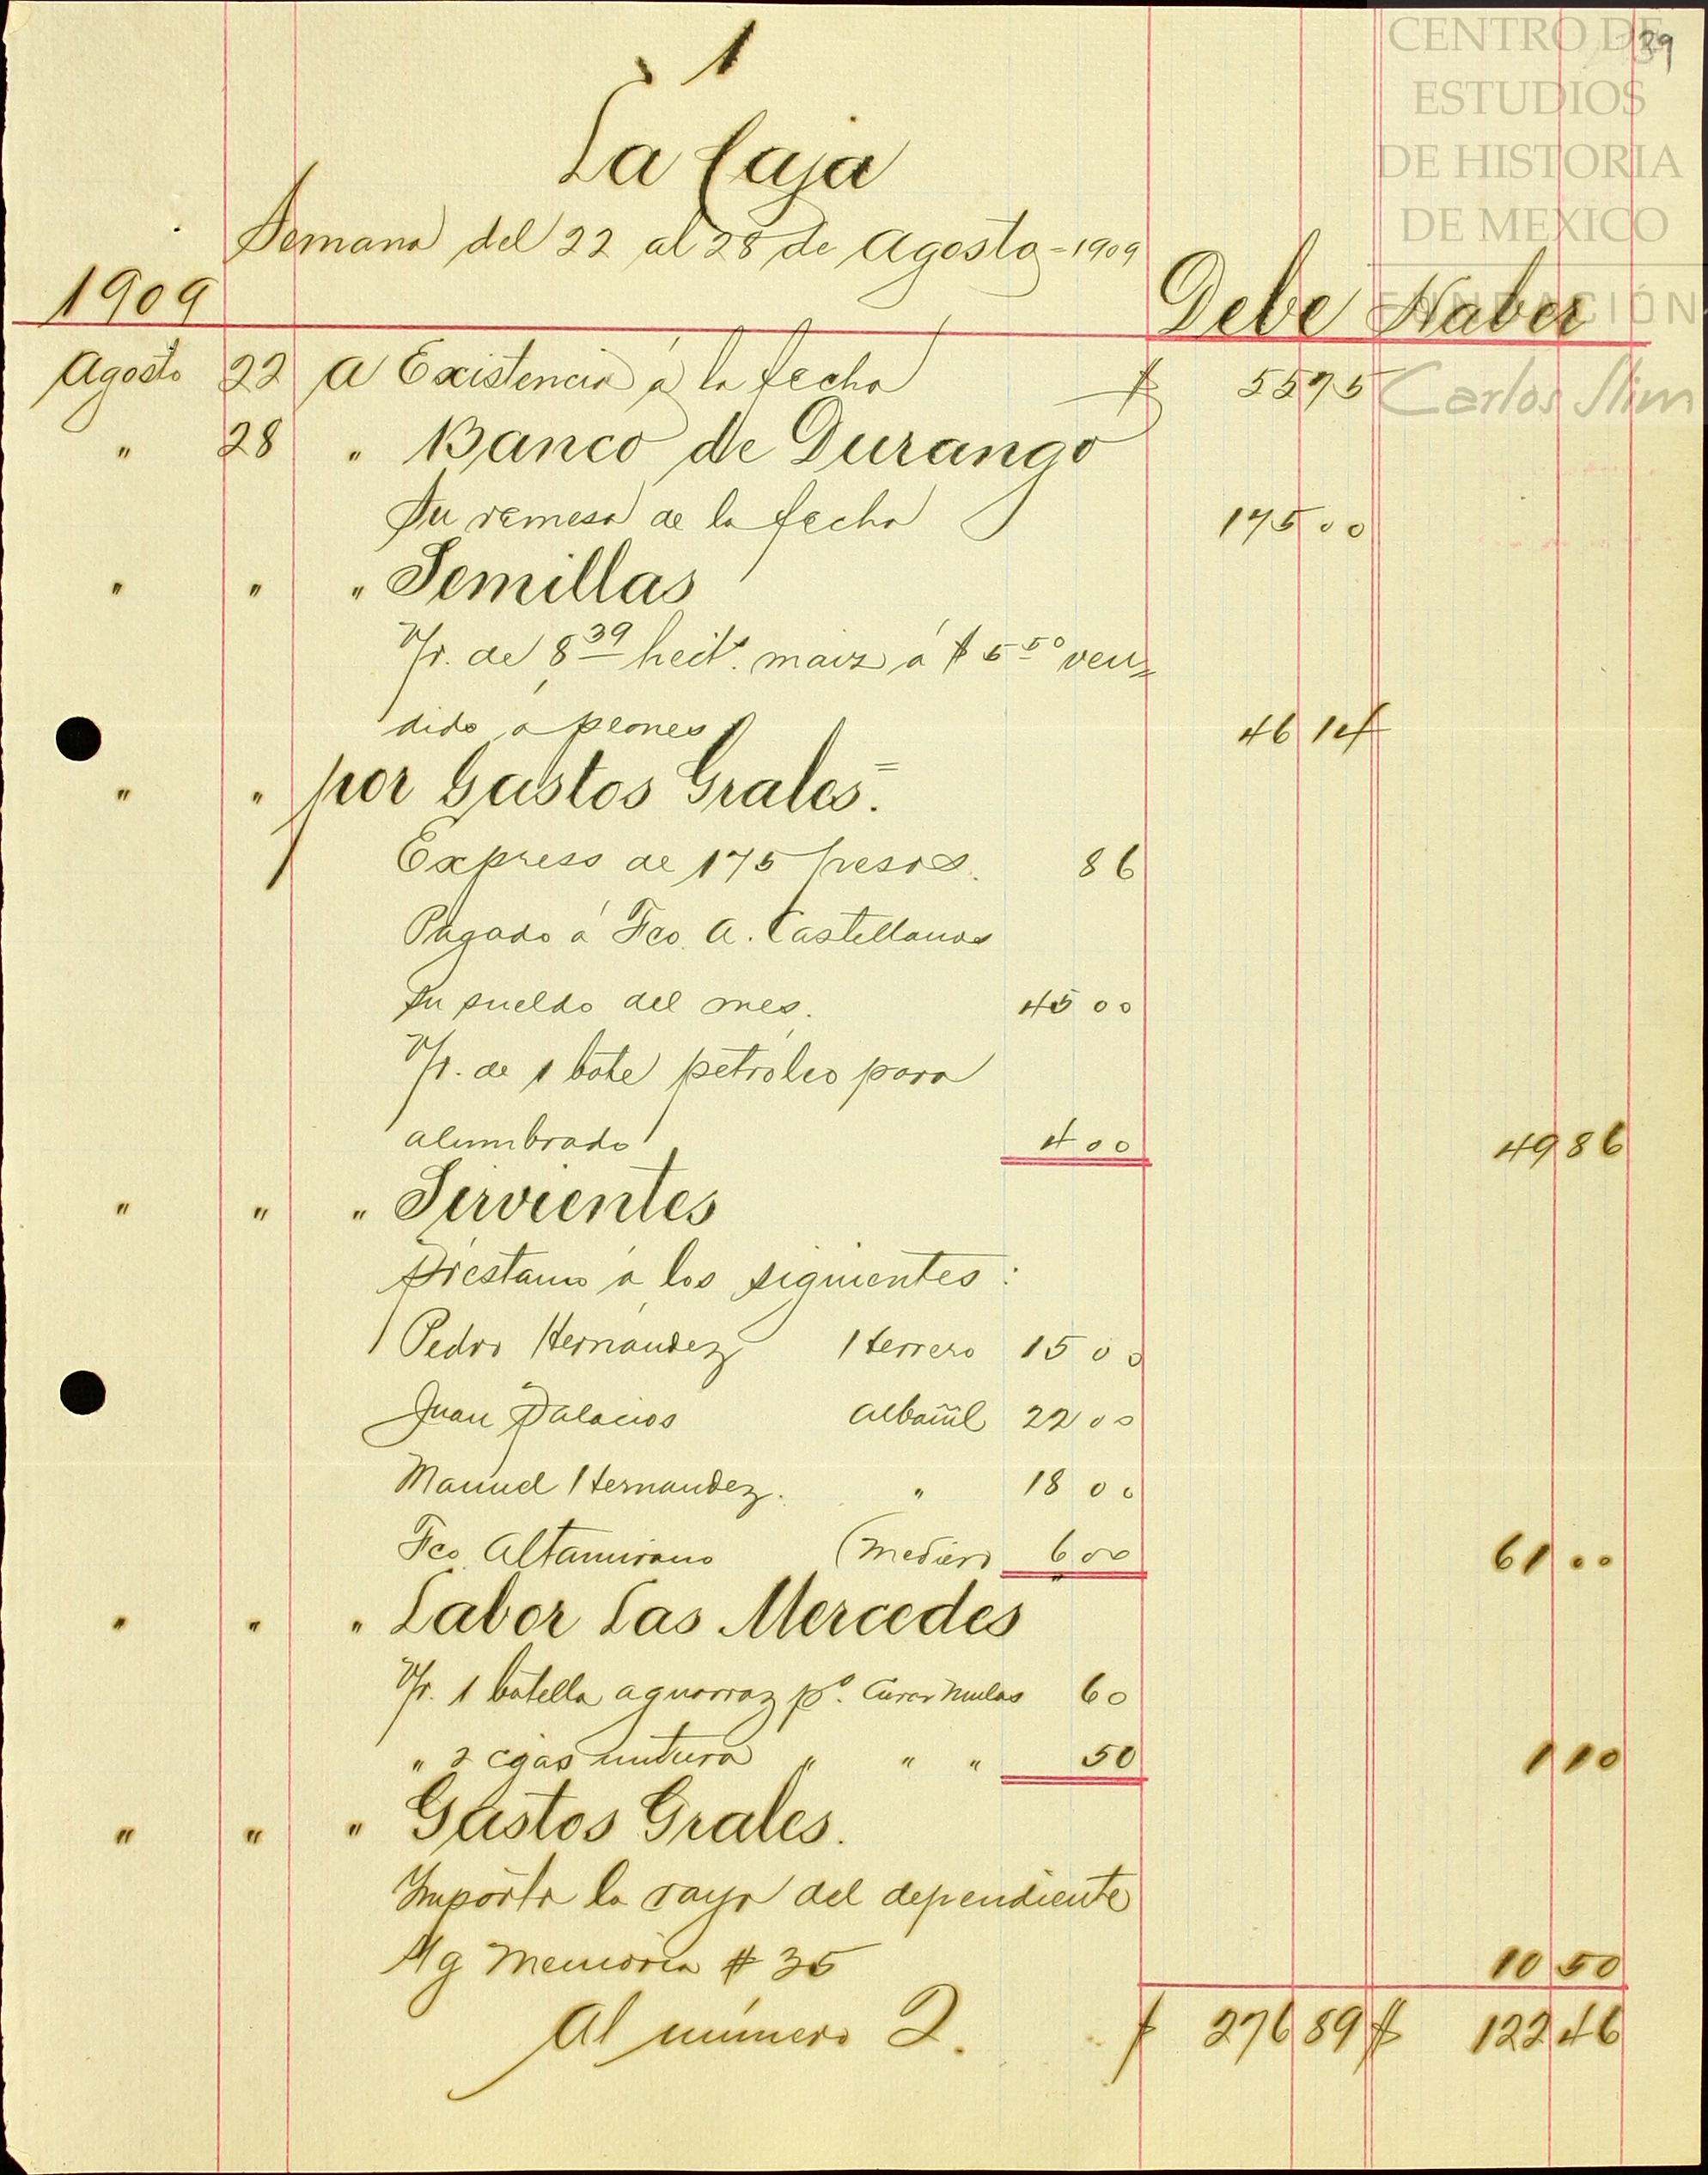 39
1
La Caja
Semana del 22 al 28 de Agosto = 1909
1909 Debe Haber
Agosto 22 a Existencia á la fecha $ 55 75
" 28 " Banco de Durango
Su remesa de la fecha 175 00
" " " Semillas
V/r. de 8 39 hect.s maiz á $ 5 50 ven=
dido á peones 46 14
" " por Gastos Grales.
Express de 175 pesos. 86
Pagado á Fco. A. Castellanos
Su sueldo del mes. 45 00
V/r. de 1 bote petróleo para
alumbrado 4 00 49 86
" " " Sirvientes
Préstamo á los siguientes:
Pedro Hernández Herrero 15 00
Juan Palacios Albañil 22 00
Manuel Hernandez. " 18 00
Fco. Altamirano (Mediero 6 00 61 00
" " " Labor Las Mercedes
V/r. 1 botella aguarraz pa. Curar Mulas 60
" 2 cajas untura " " " 50 1 10
" " " Gastos Grales.
Importe la raya del dependiente
Sg Memoria # 35 10 50
Al número 2. $ 276 89 $ 122 46
CENTRO DE
ESTUDIOS
DE HISTORIA
DE MEXICO
FUNDACIÓN
Carlos Slim